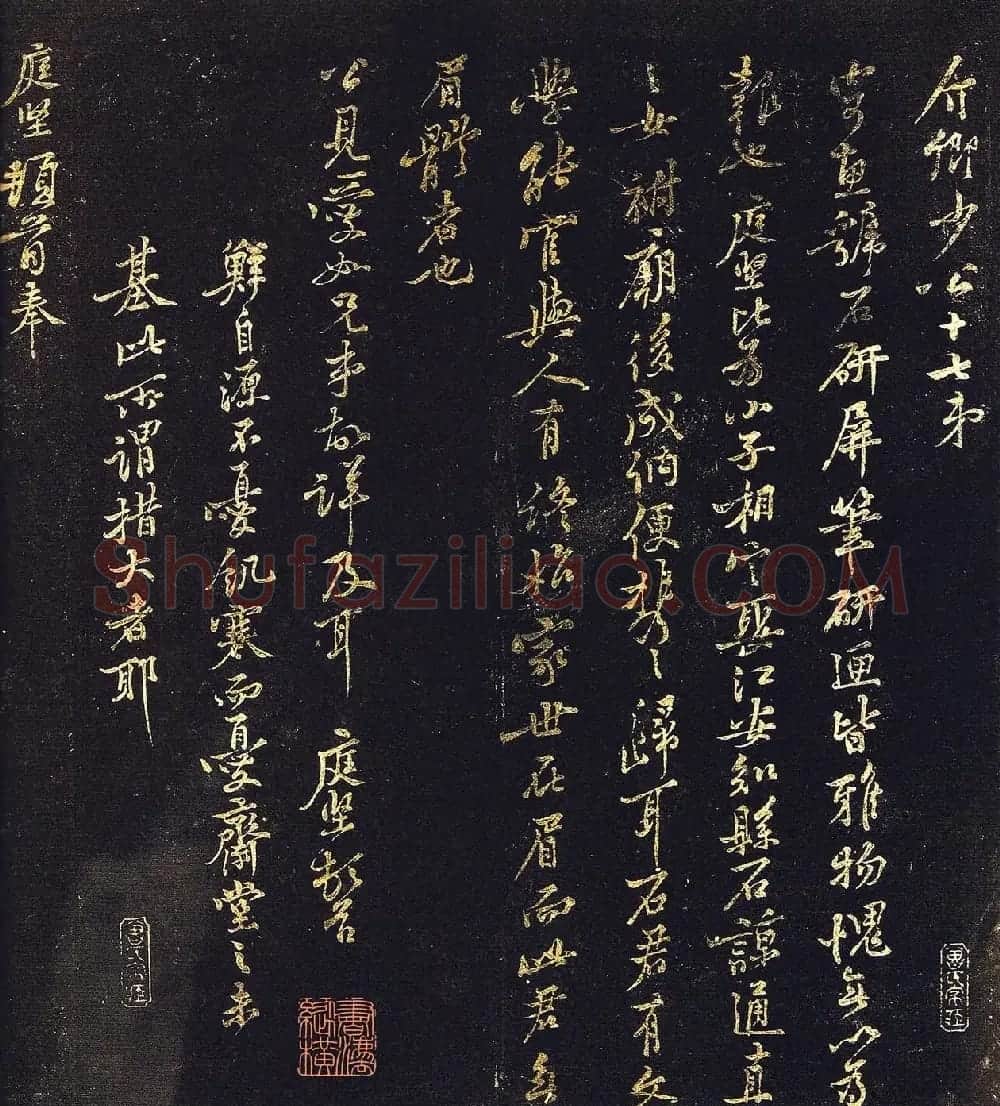 介卿少公十七弟
寄惠號石研屏筆研通皆雅物愧無以為
報也庭堅比為小子相定娶江安知縣石諒通直
之女祔廟後成備便 之歸耳石君有文
學能官與人有終始家世在眉而此君無
眉 者也
公見愛如兄弟故詳及耳 庭堅頓首
鮮自源不憂飢寒而憂齋堂之未
基此所謂措大者耶
庭堅頓首奉
Shufaziliao.COM